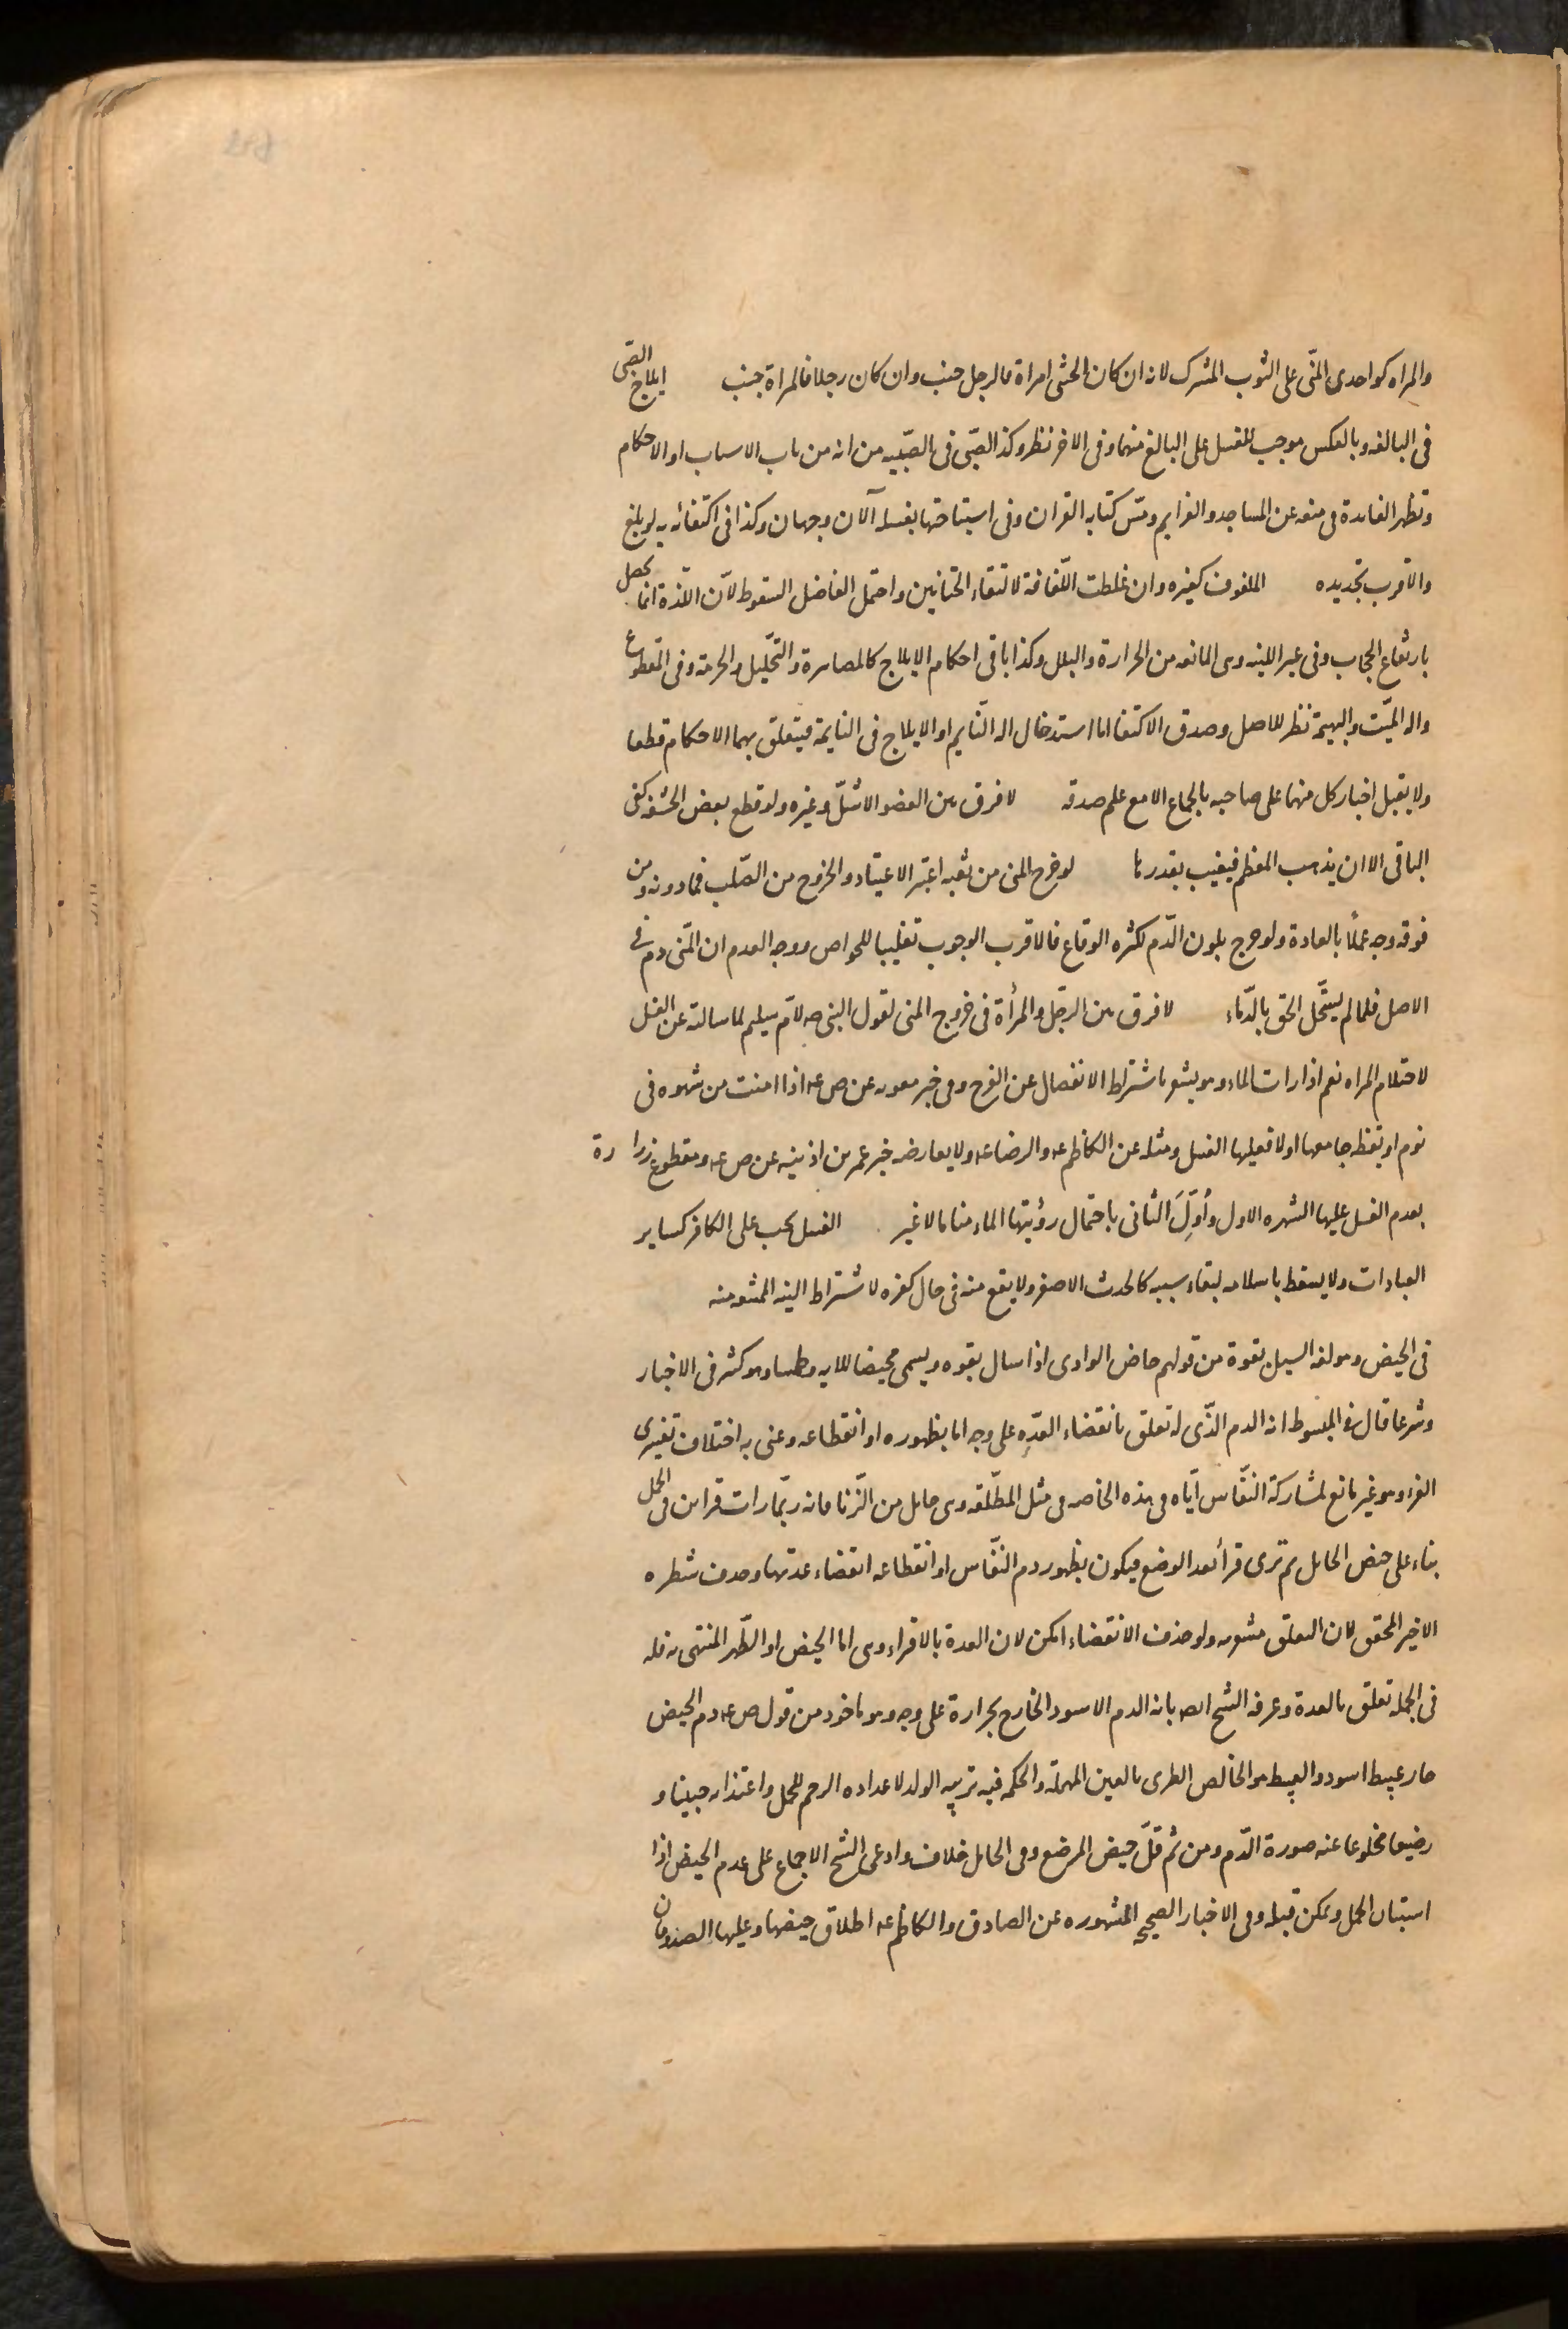 والمراه كواحدى المنّى على الثوب المشترك لانه ان كان الخنثى امراة فالرجل جنب وان كان رجلا فالمراة جنب ايلاج الصّبى
فى البالغه وبالعكس موجب للغسل على البالغ منهما وفى الاخر نظر وكذ الصّبى فى الصّبيه من انه من باب الاسباب او الاحكام
وتظهر الفايدة فى منعه عن المساجد والعزايم ومسّ كتابه القران وفى استباحتها بغسله الآن وجهان وكذا فى اكتفائه به لو بلغ
والاقرب تجديده الملفوف كغيره وان غلظت اللّفافة لالتقاء الختانين واحتمل الفاضل السقوط لانّ اللّذة انما تحصل
بارتفاع الحجاب وفى غير اللينه وهى المانعه من الحرارة والبلل وكذا باقى احكام الايلاج كالمصاهرة والتّحليل والحرمة وفى المقطوع
واله الميّت والبهيمة نظر للاصل وصدق الاكتفا اما استدخال اله النّايم او الايلاج فى النايمة فيتعلق بهما الاحكام قطعا
ولا يقبل اخبار كل منهما على صاحبه بالجماع الا مع علم صدقه لا فرق بين العضو الاشلّ وغيره ولو قطع بعض الحشفه كفى
الباقى الا ان يذهب المعظم فيغيب بقدرها لو خرج المنى من ثقبه اعتبر الاعتياد والخروج من الصّلب فما دونه ومن
فوقه وجه عملاً بالعادة ولو خرج بلون الدّم لكثره الوقاع فالاقرب الوجوب تغليبا للخواص ووجه العدم ان المنّى دم فى
الاصل فلما لم يستحل الحق بالدّماء لا فرق بين الرجل والمرأة فى خروج المنى لقول النبى صه لامّ سيلم لما سالته عن الغسل
لاحتلام المراه نعم اذا رات الماء وهو يشعر باشتراط الانفصال عن الفرج وفى خبر معويه عن ص عه اذا امنت من شهوه فى
نوم او يقظه جامعها اولا فعليها الغسل ومثله عن الكاظم عه والرضا عه ولا يعارضه خبر عمر بن اذينه عن ص عه ومقطوع زرارة
بعدم الغسل عليها لشهره الاول وأوِّلَ الثانى باحتمال رؤيتها الماء مناما لا غير الغسل يجب على الكافر كساير
العبادات ولا يسقط باسلامه لبقاء سببه كالحدث الاصغر ولا يقع منه فى حال كفره لاشتراط النيه الممتنعه منه
فى الحيض وهو لغه السيل بقوة من قولهم حاض الوادى اذا سال بقوه ويسمى محيضا للايه وطمثا وهو كثير فى الاخبار
وشرعا قال فى المبسوط انه الدم الذّى له تعلق بانقضاء العدّه على وجه اما بظهوره او انقطاعه وعنى به اختلاف تفسيرى
القرء وهو غير مانع لمشاركة النّفاس ايّاه فى هذه الخاصه فى مثل المطلّقه وهى حامل من الزّنا فانه ربّما رات قراين فى الحمل
بناء على حيض الحامل ثم ترى قرأ بعد الوضع فيكون بظهور دم النّفاس او انقطاعه انقضاء عدتها وحذف شطره
الاخير المحقق لان التعلق مشعر به ولو حذف الانقضاء امكن لان العدة بالاقراء وهى اما الحيض او الطّهر المنتهى به فله
فى الجمله تعلق بالعدة وعرفه الشيخ ايضا بانه الدم الاسود الخارج بحرارة على وجه وهو ماخوذ من قول ص عه دم الحيض
حار عبيط اسود والعبيط هو الخالص الطرى بالعين المهملة والحكمه فيه تربيه الولد لاعداده الرحم للحمل واغتذائه جنينا و
رضيعا مخلوعا عنه صورة الدّم ومن ثم قلّ حيض المرضع وفى الحامل خلاف وادعى الشيخ الاجماع على عدم الحيض اذا
استبان الحمل ويمكن قبله وفى الاخبار الصحيحه المشهوره عن الصادق والكاظم عه اطلاق حيضها وعليها الصدوقان